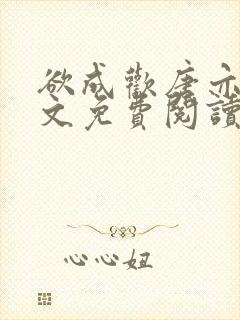 欲成歡唐亦
文免費閱讀
心心妞